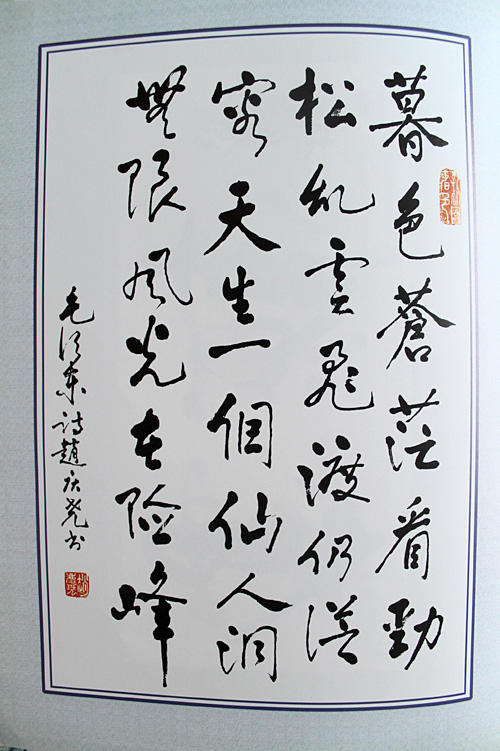 暮色蒼茫看勁
松乱雲飛渡仍從
容天生一個仙人洞
無限风光在险峰
毛泽東诗趙庆尧书